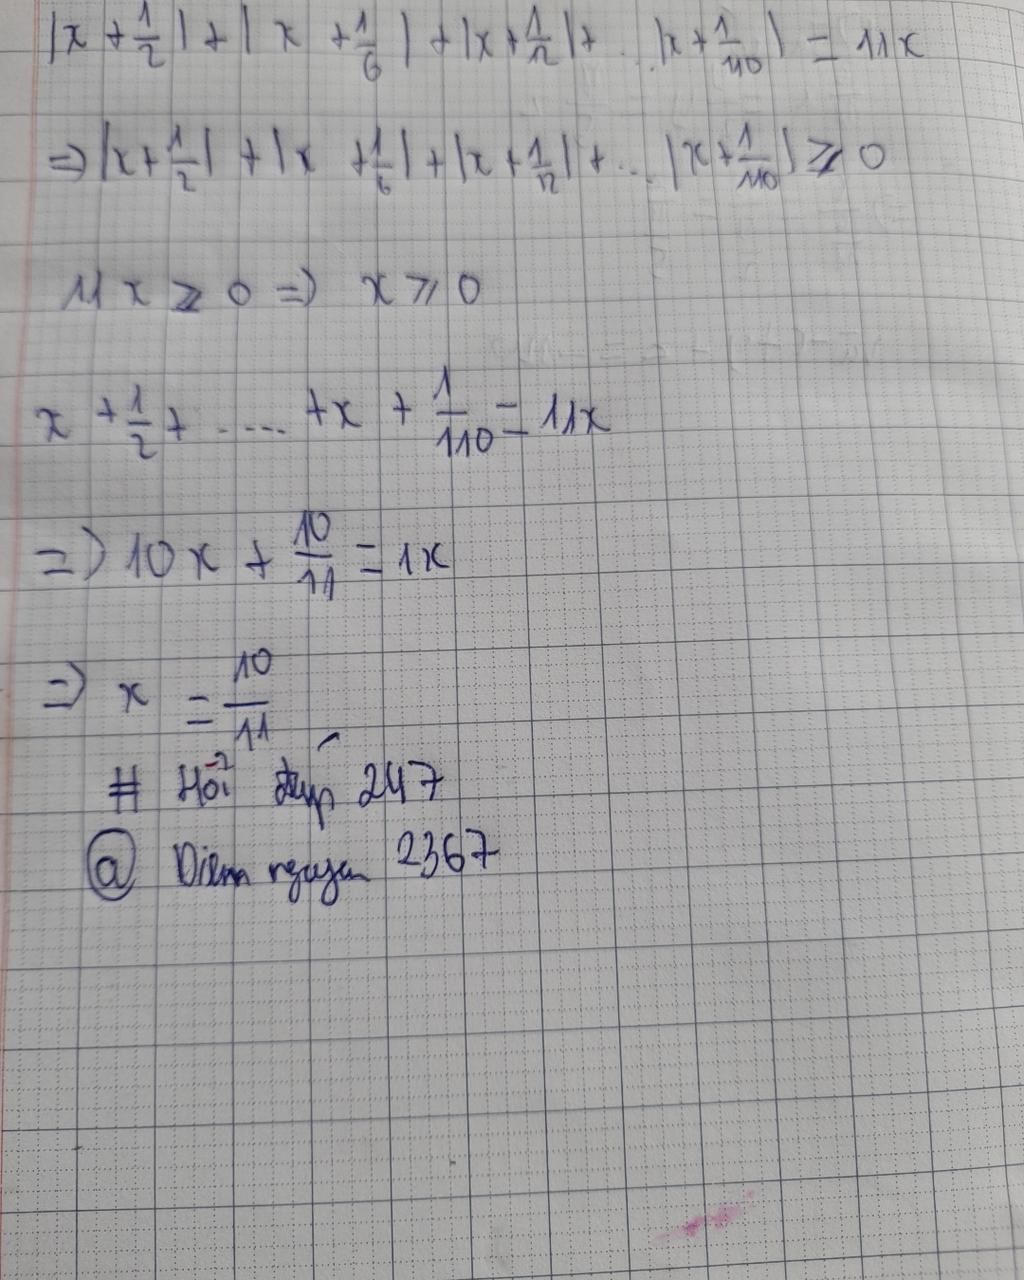 |x + 1/2| + | x + 1/6 | + |x + 1/12| + .. |x + 1/110| = 11x
=> |x + 1/2| + |x + 1/6| + |x + 1/12| + ... |x + 1/110| ⩾ 0
11x ⩾ 0 => x ⩾ 0
x + 1/2 + ..... + x + 1/110 = 11x
=> 10x + 10/11 = 1x
=> x = 10/11
# Hỏi đáp 247
@ Diem nguyen 2367